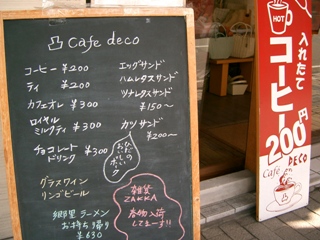 Cafe deco
コーヒー ¥200
ティ ¥200
カフェオレ ¥300
ロイヤル
ミルクティ ¥300
チョコレート
ドリンク ¥300
グラスワイン
リンゴビール
郷里ラーメン
お持ち帰り
¥630
エッグサンド
ハムレタスサンド
ツナレタスサンド
¥150〜
カツサンド
¥200〜
雑貨
ZAKKA
春物入荷
してまーす!!
HOT
入れたて
コーヒー
200円
DECO
Cafe